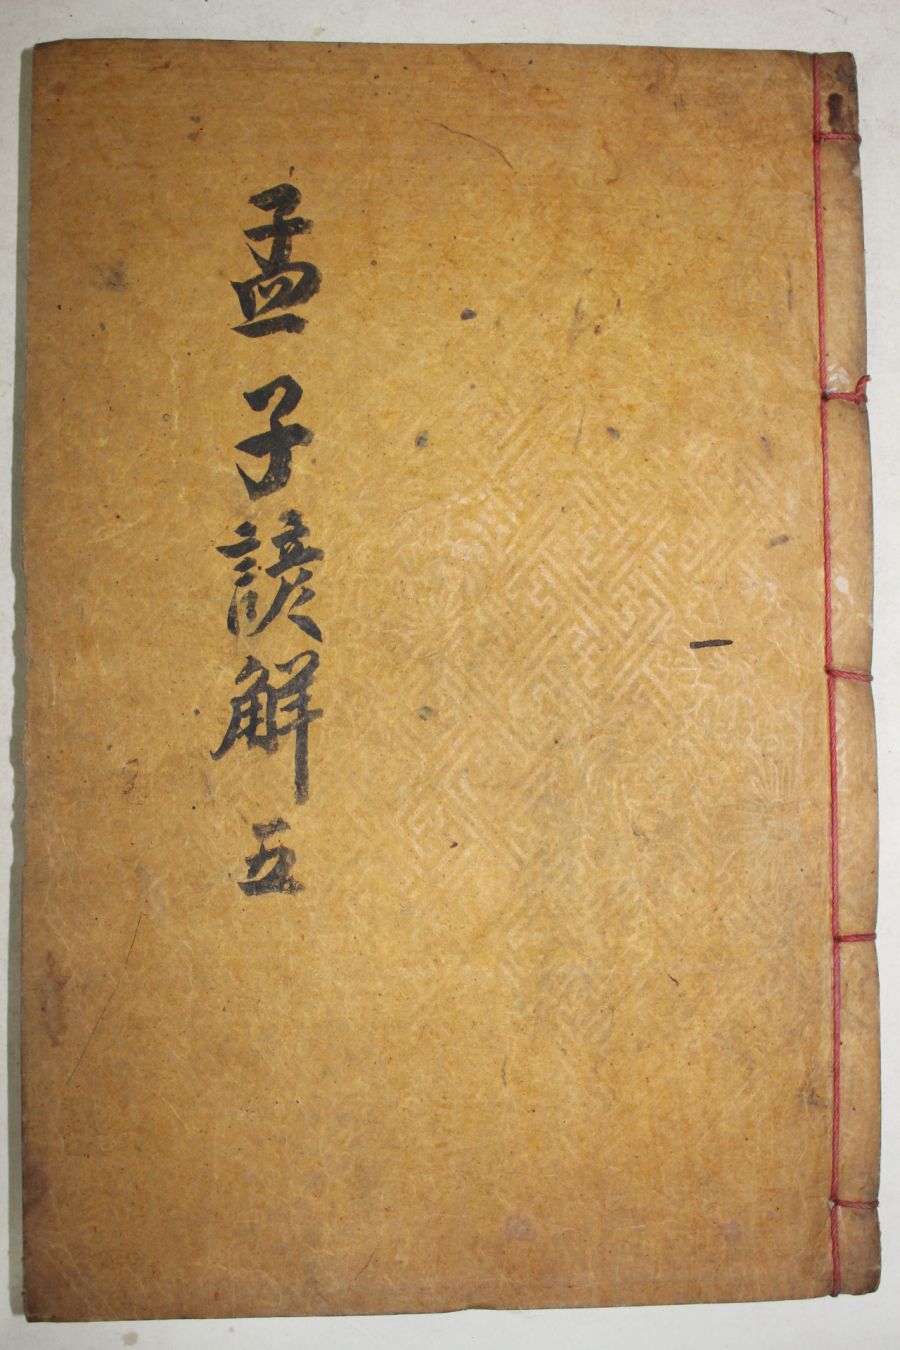 孟子諺解 五